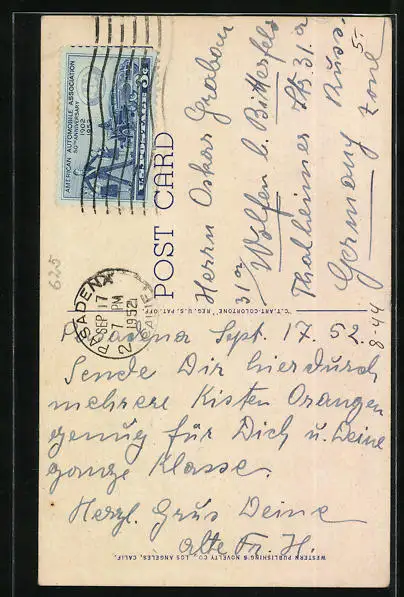 AMERICAN AUTOMOBILE ASSOCIATION
50TH ANNIVERSARY
1902
U.S. POSTAGE 3¢
POST CARD
PASADENA
SEP 17
7 PM
1952
625
Herrn Oskar Grabow
31a Wolfen b. Bitterfeld
Thalheimer Str. 31a
Germany Russ.
Zone
5.
8-44
"C.T. ART-COLORTONE" REG. U.S. PAT. OFF.
Pasadena Sept. 17. 52.
Sende Dir hierdurch
mehrere Kisten Orangen
genug für Dich u. Deine
ganze Klasse.
Herzl. Grus Deine
alte Fr. H.
WESTERN PUBLISHING & NOVELTY CO., LOS ANGELES, CALIF.